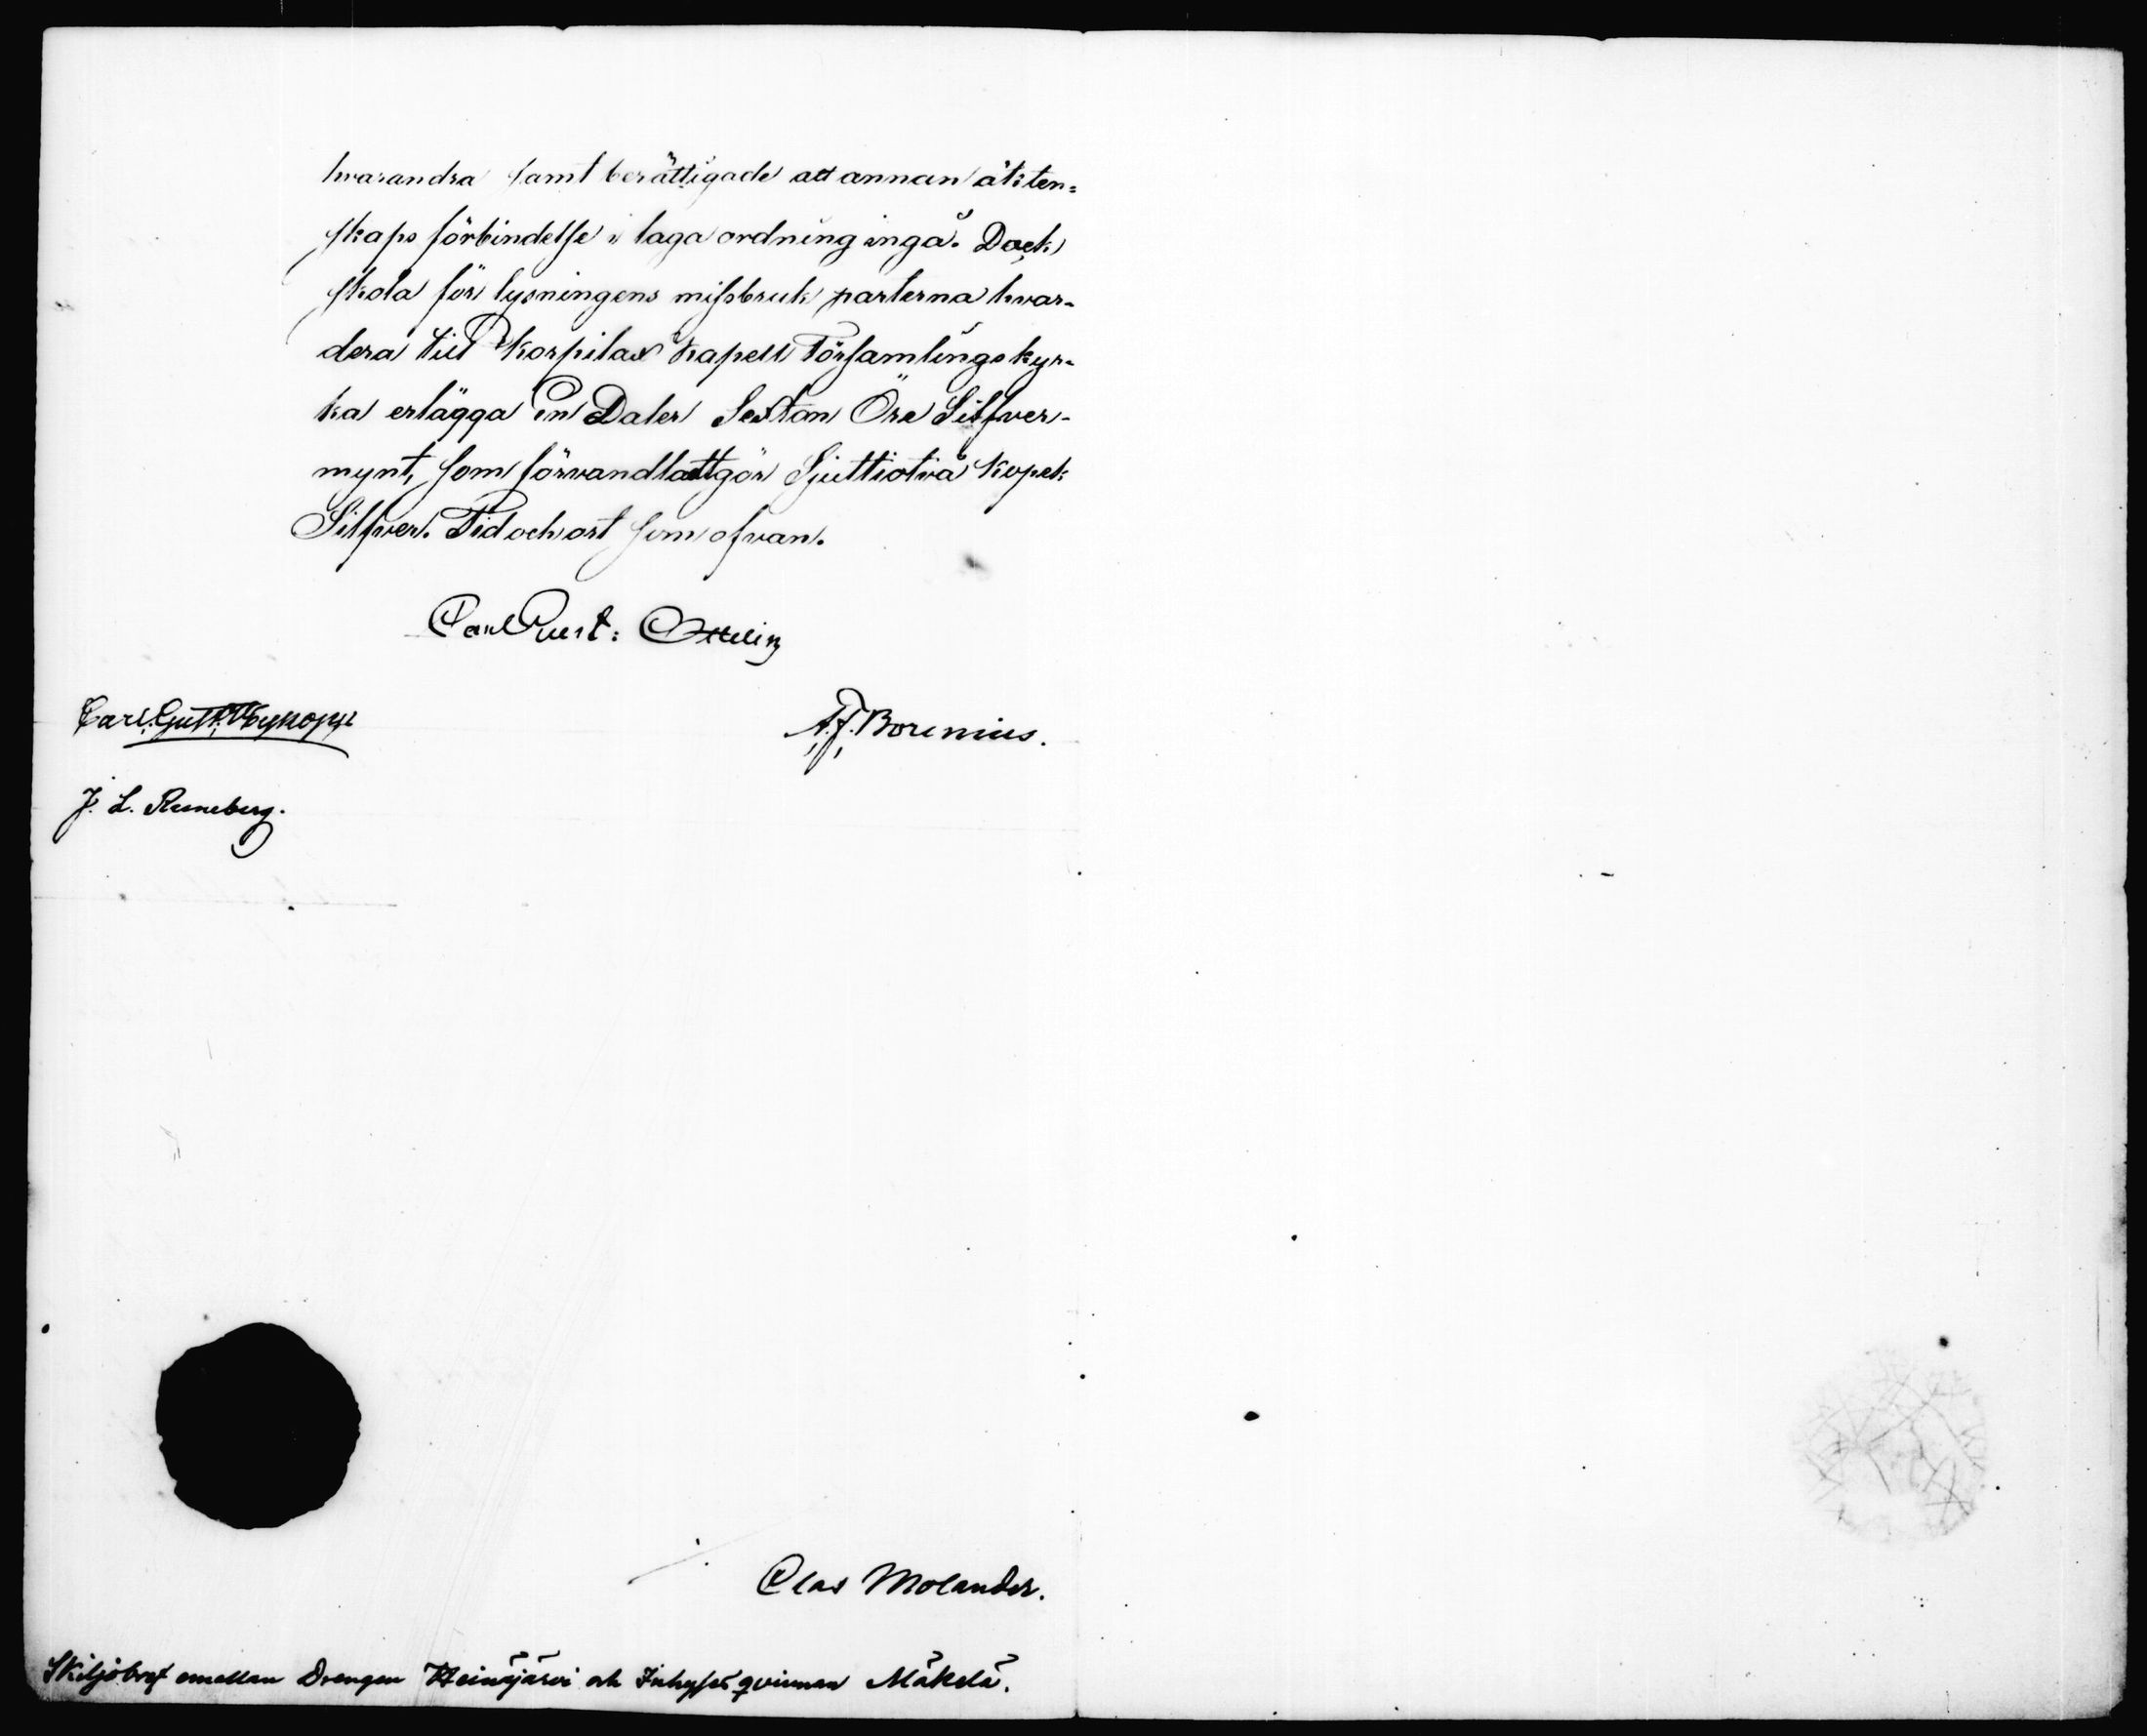 hvarandra samt berättigade att annan äkten=
skaps förbindelse i laga ordning ingå. Dock
skola för lysningens missbruk parterna hvar-
dera till Korpilax Kapell Församlings kyr-
ka erlägga en Daler Sexton Öre Silfver-
mynt, som förvandladt gör Sjuttiotvå Kopek
Silfver. Tid och ort som ofvan.
Carl Gust: Ottelin
Carl. Gust. Weykopp
A. F. Borenius.
J. L. Runeberg.
Clas Molander.
Skiljobref emellan Drengen Heinäjärvi och Inhyses qvinnan Mäkelä.